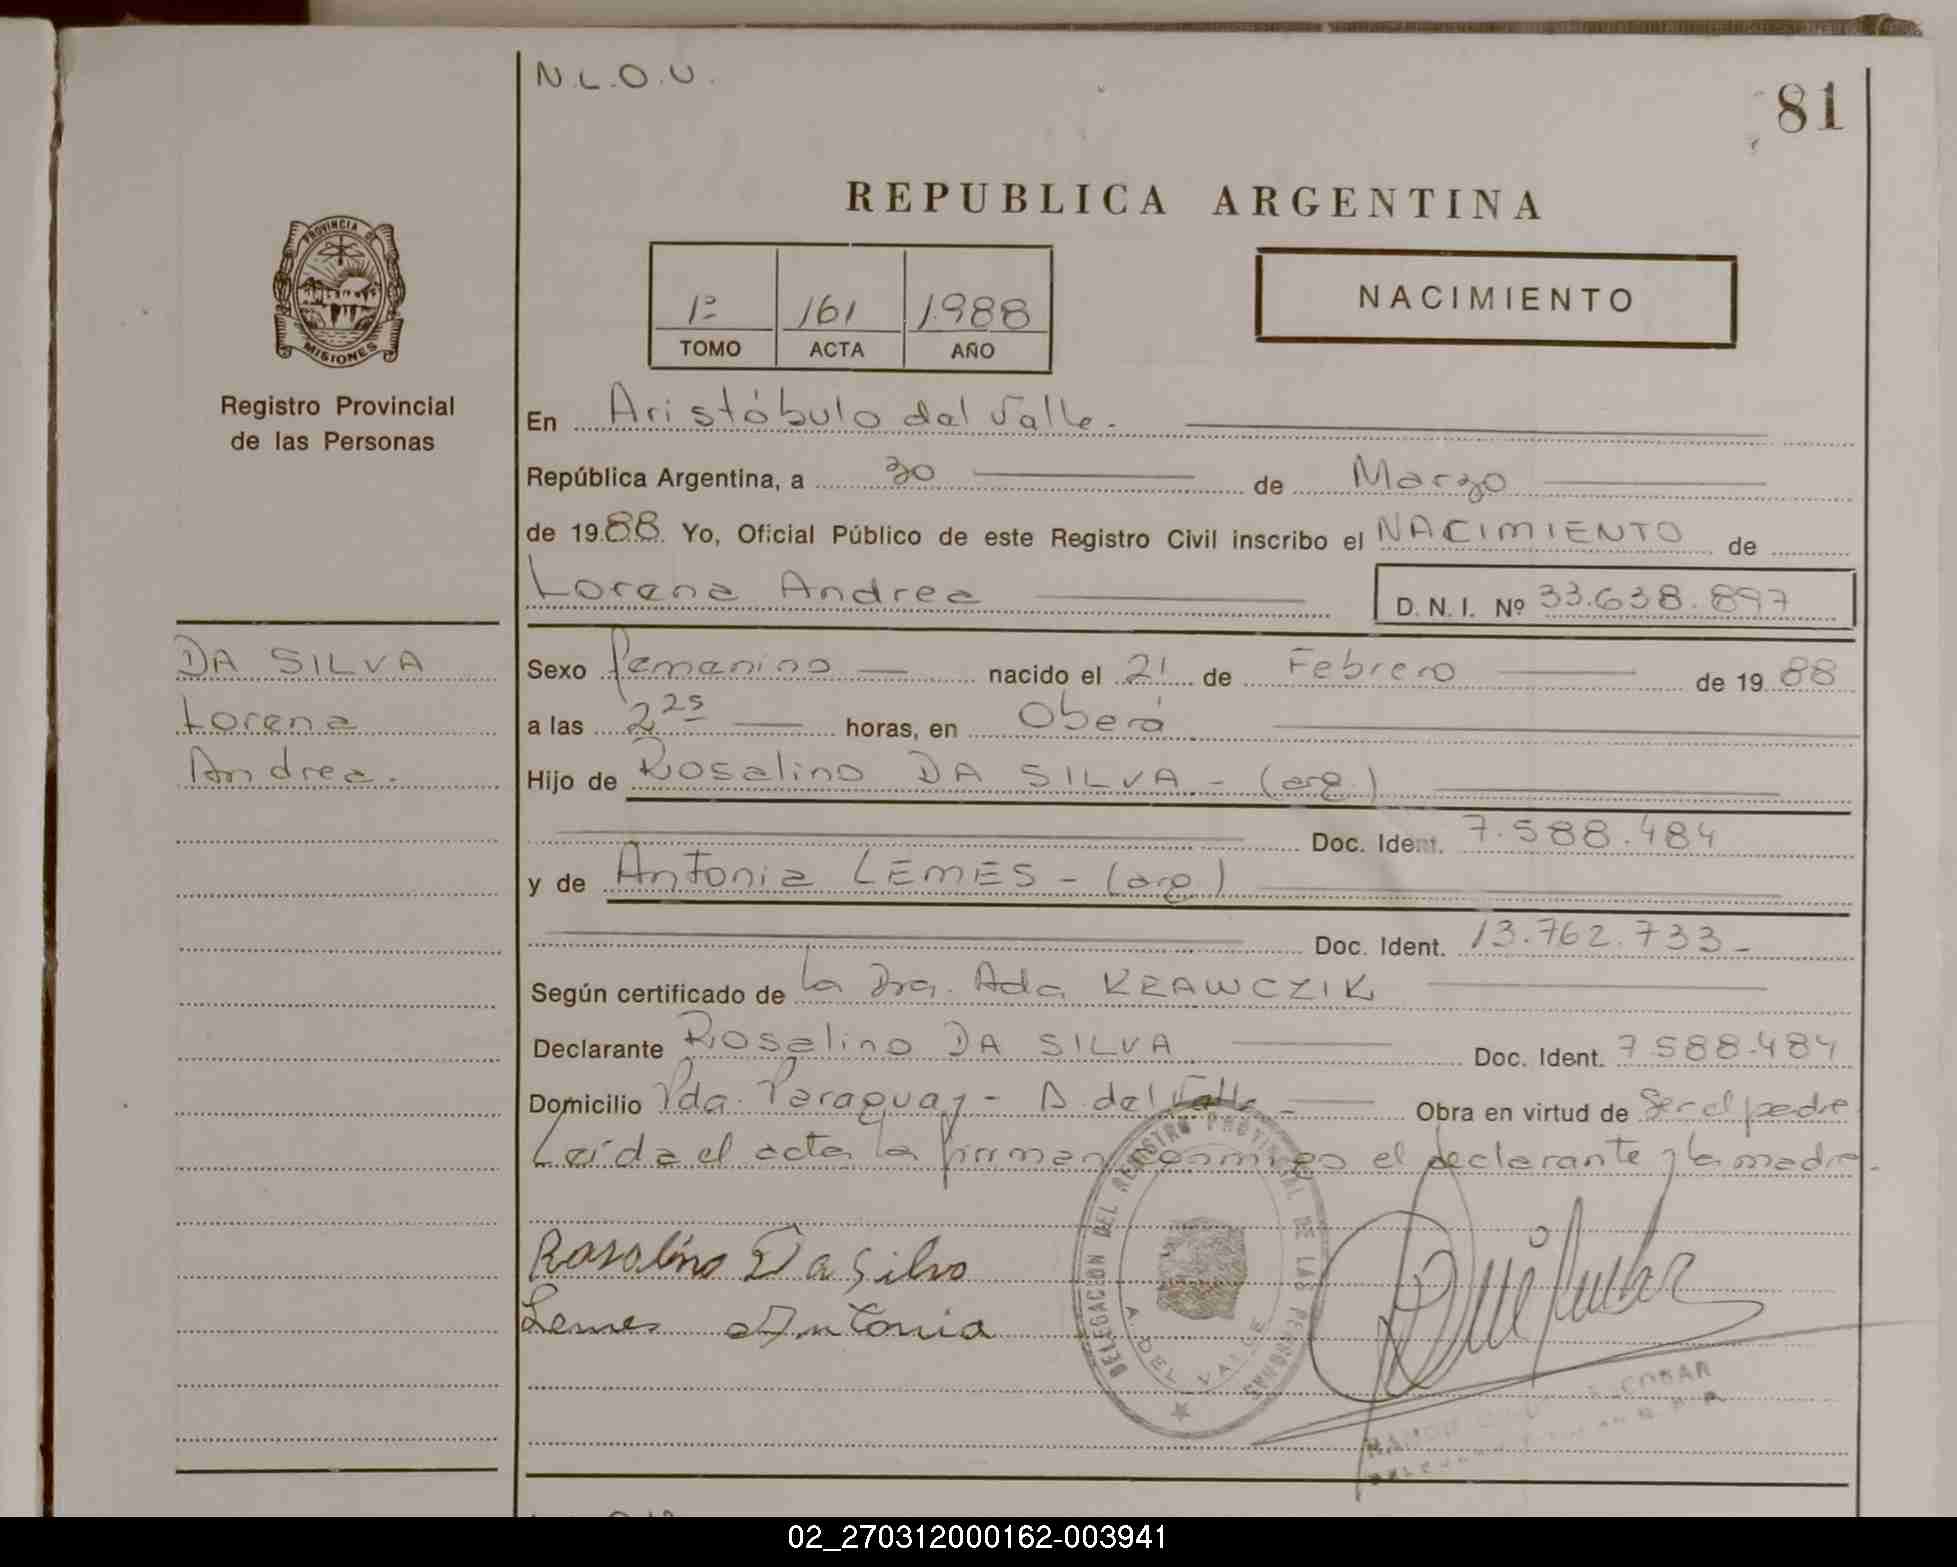 N.L.O.U.
81
REPUBLICA ARGENTINA
PROVINCIA DE
MISIONES
1º 161 1988
TOMO ACTA AÑO
NACIMIENTO
Registro Provincial
de las Personas
En Aristóbulo del Valle.
República Argentina, a 30 de Marzo
de 1988 Yo, Oficial Público de este Registro Civil inscribo el NACIMIENTO de
Lorena Andrea D. N. I. Nº 33.638.897
DA SILVA
Lorena
Andrea.
Sexo femenino nacido el 21 de Febrero de 1988
a las 2 25 horas, en Oberá
Hijo de Rosalino DA SILVA - (arg.)
Doc. Ident. 7.588.484
y de Antonia LEMES - (arg)
Doc. Ident. 13.762.733-
Según certificado de la Dra. Ada KRAWCZIK
Declarante Rosalino DA SILVA Doc. Ident. 7.588.484
Domicilio Pda. Paraguay - A. del Valle - Obra en virtud de Ser el padre
Leída el acta la firman conmigo el declarante y la madre.
Rosalino Da Silva
Lemes Antonia
DELEGACION DEL REGISTRO PROVINCIAL DE LAS PERSONAS
A. DEL VALLE
02_270312000162-003941